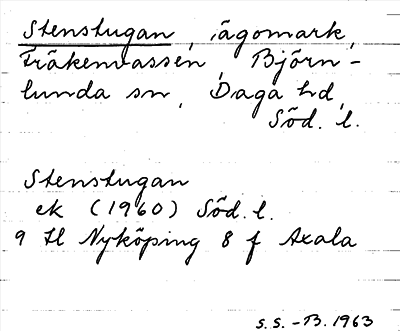 Stenstugan, ägomark,
Fräkenvassen, Björn-
lunda sn, Daga hd,
Söd. l.
Stenstugan
ek (1960) Söd. l.
9 H Nyköping 8 f Axala
S.S. - B. 1963